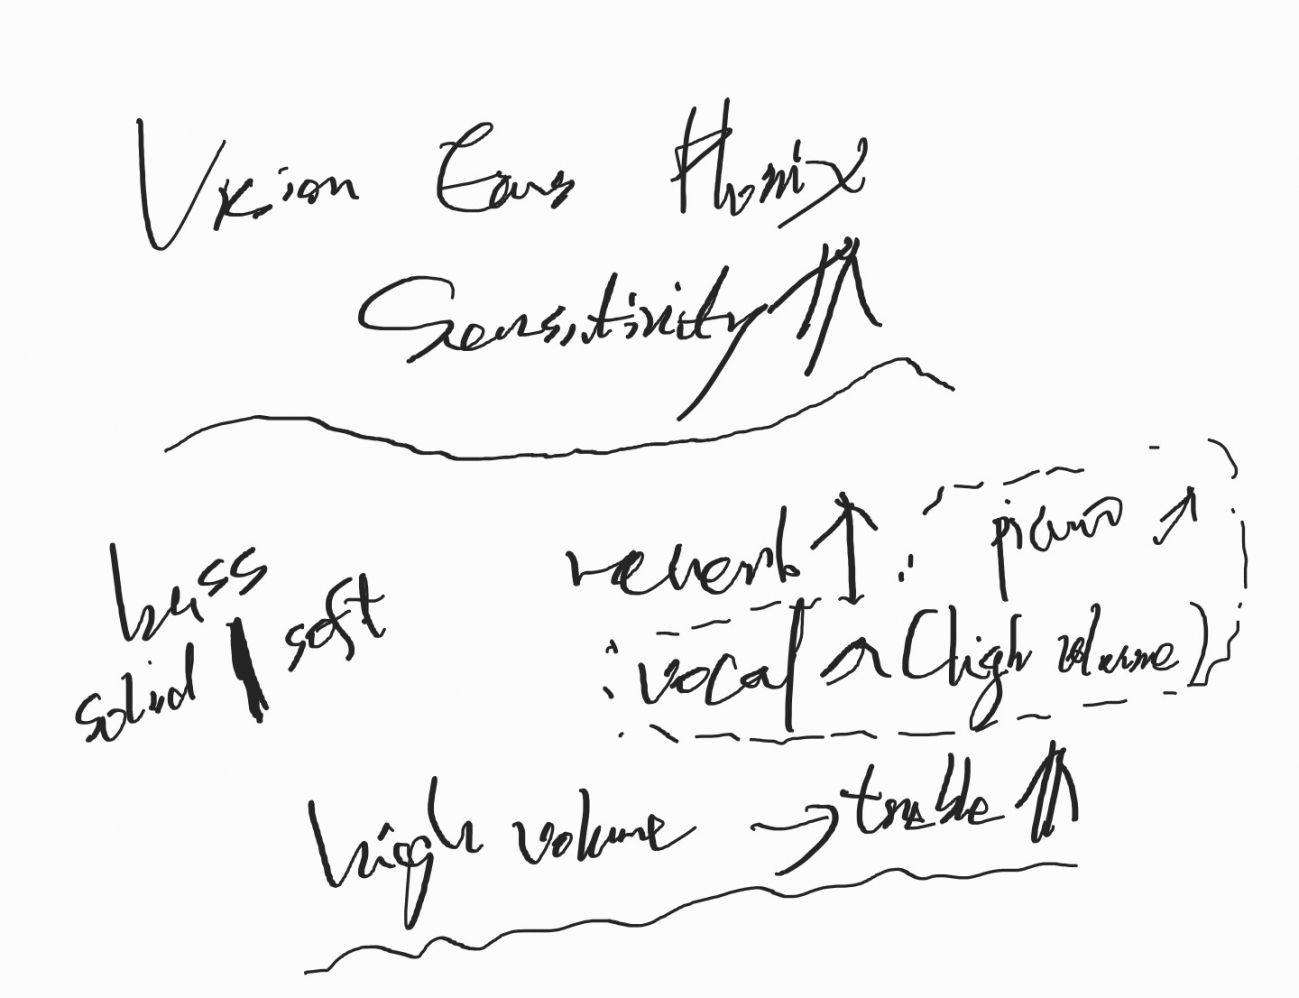 Vision Ears Phonix
Sensitivity ⇑
bass
solid / soft
reverb ↑
piano ↗
vocal ↗ (high volume)
high volume → treble ⇑